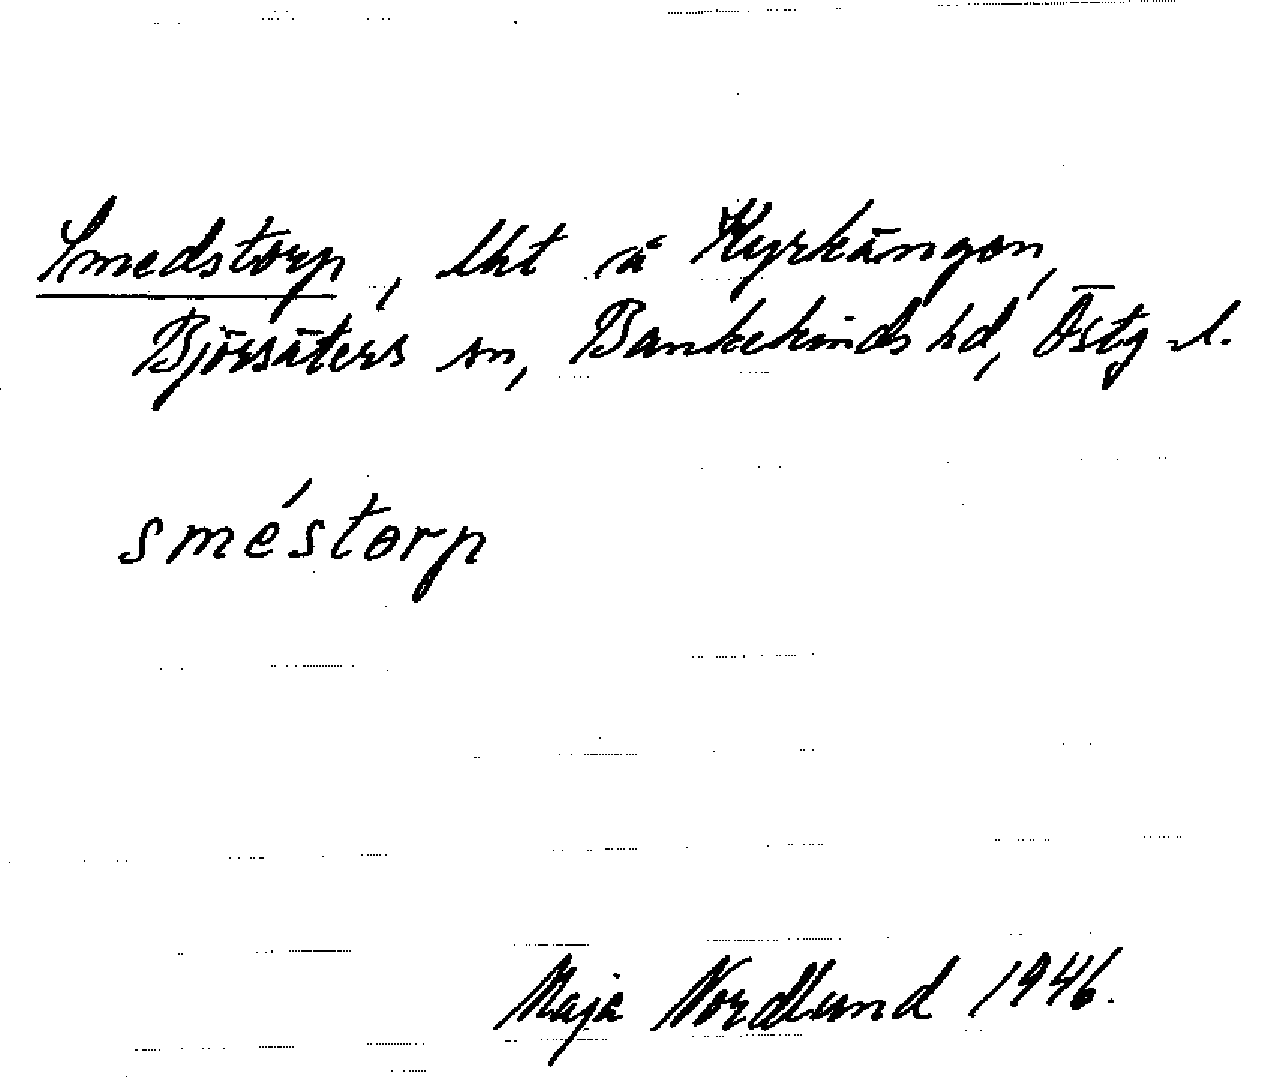 Smedstorp, lht å Kyrkängen,
Björsäters sn, Bankekinds hd, Östg l.
sméstorp
Maja Nordlund 1946.